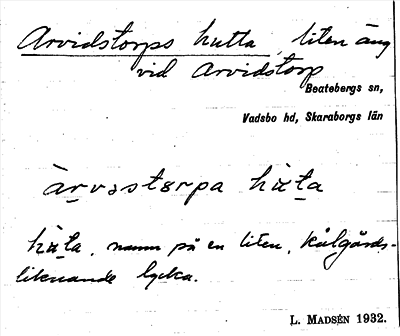 Arvidstorps hutta, liten äng
vid Arvidstorp
Beatebergs sn,
Vadsbo hd, Skaraborgs län
àr̲vəstɵrpa hùt̲a
hùt̲a, namn på en liten, kålgårds-
liknande lycka.
L. MADSÉN 1932.